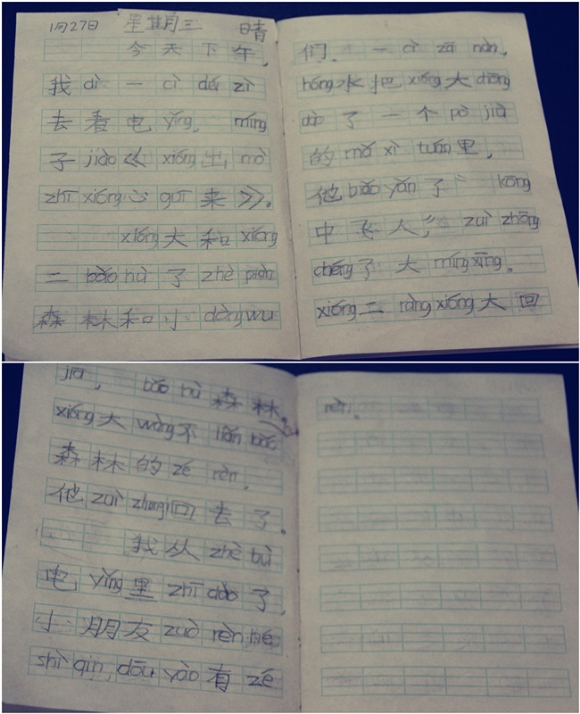 1月27日 星期三 晴
今天下午,
我 dì 一 cì dú zì
去看电 yǐng, míng
子 jiào《 xióng 出 mò
zhī xióng 心 guī 来》。
xióng 大和 xióng
二 bǎo hù 了 zhè piàn
森林和小 dòng wù
们. 一 cì zāi nàn,
hóng 水把 xióng 大 chōng
dào 了一个 pò jiù
的 mǎ xì tuán 里,
他 biǎo yǎn 了“ kōng
中飞人”, zuì zhōng
chéng 了大 míng xīng。
xióng 二 ràng xióng 大回
jiā, bǎo hù 森林。
xióng 大 wàng 不
森林的 zé rèn,
他 zuì zhōng 回去了。
我从 zhè bù
电 yǐng 里 zhī dào 了,
小朋友 zuò rèn hé
shì qin dōu yào 有 zé